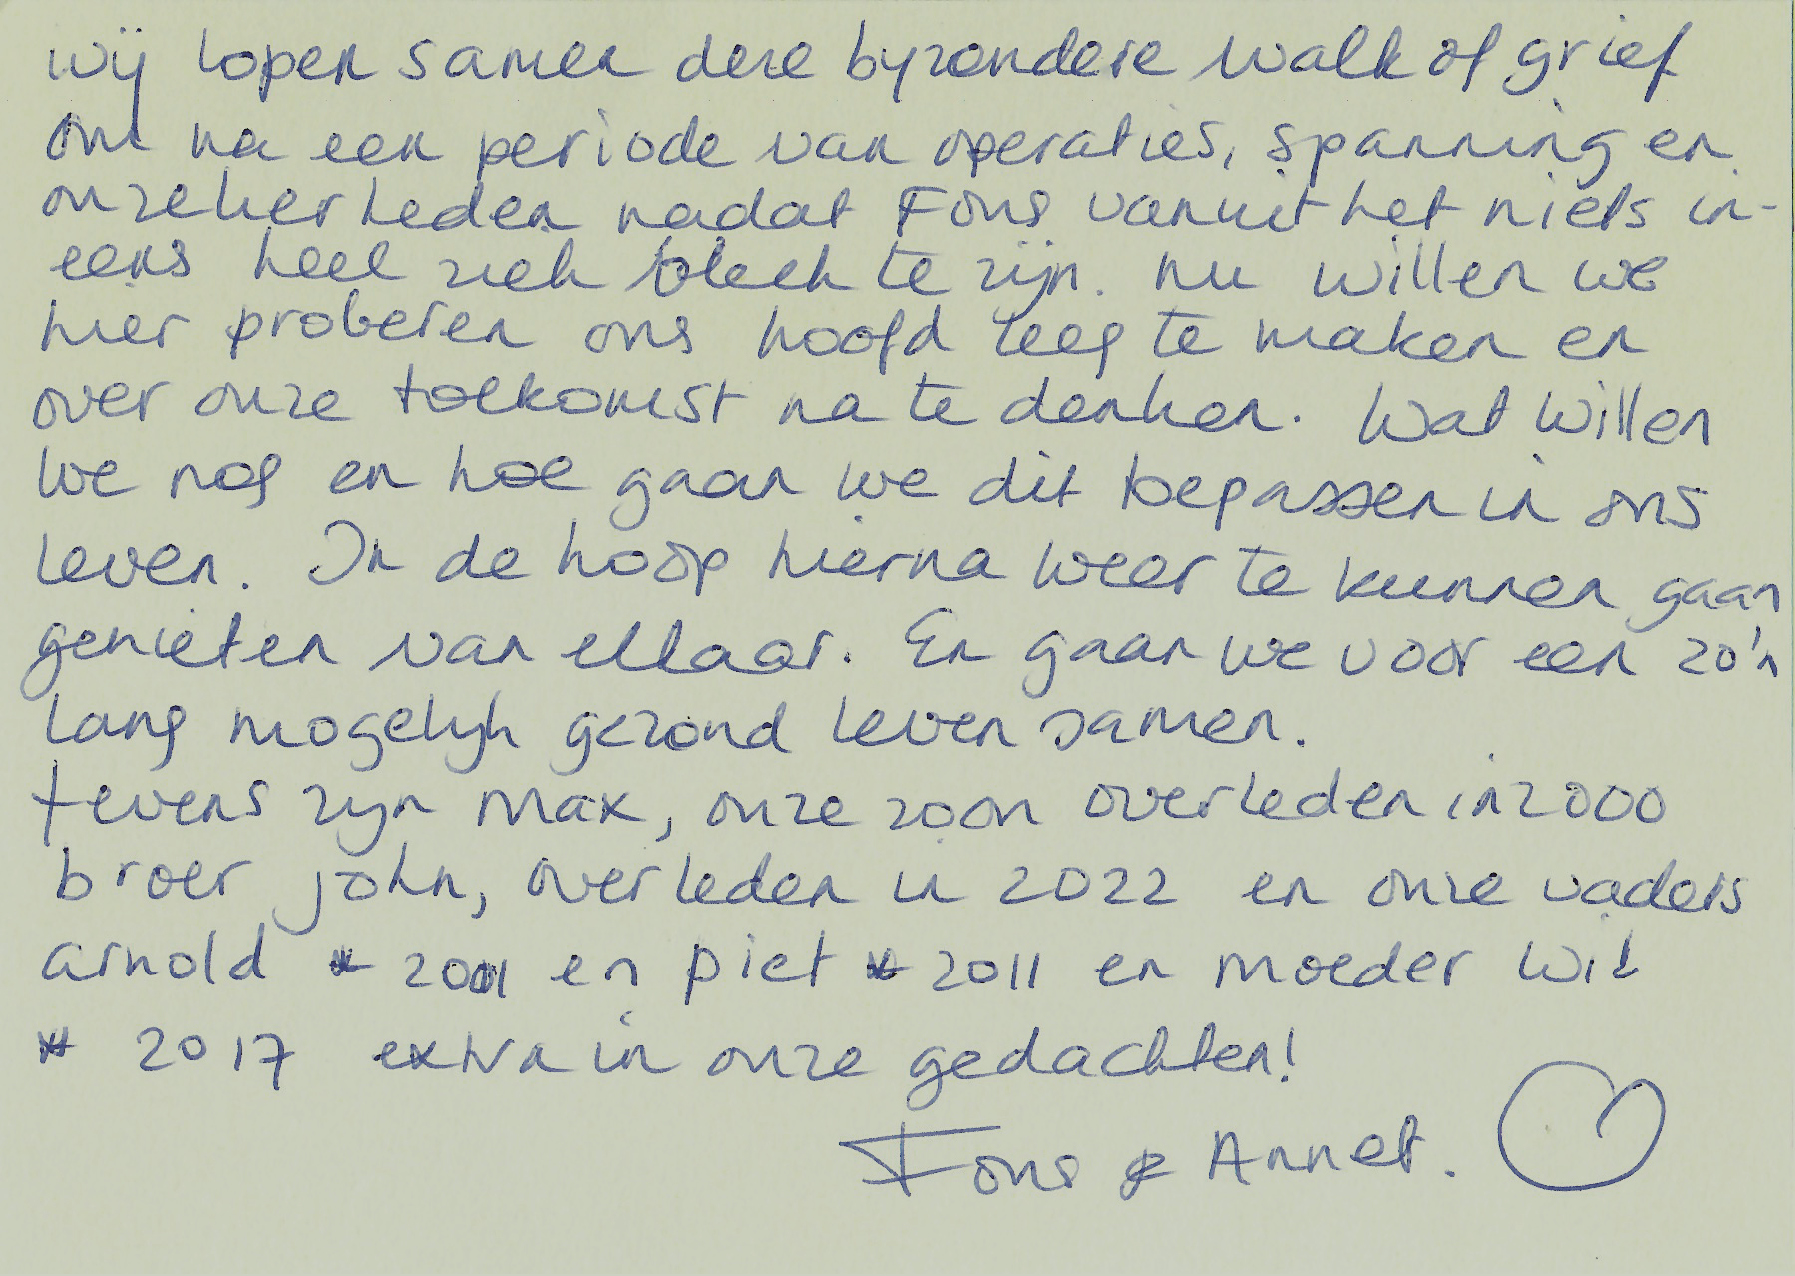 wij lopen samen deze byzondere walk of grief
om na een periode van operaties, spanning en
onzekerheden nadat Fons vanuit het niets in-
eens heel ziek bleek te zijn. nu willen we
hier proberen ons hoofd leeg te maken en
over onze toekomst na te denken. Wat willen
we nog en hoe gaan we dit toepassen in ons
leven. In de hoop hierna weer te kunnen gaan
genieten van elkaar. En gaan we voor een zo'n
lang mogelyk gezond leven samen.
tevens zyn Max, onze zoon overleden in 2000
broer john, overleden in 2022 en onze vaders
arnold * 2001 en piet * 2011 en moeder Wil
* 2017 extra in onze gedachten!
Fons & Annet.